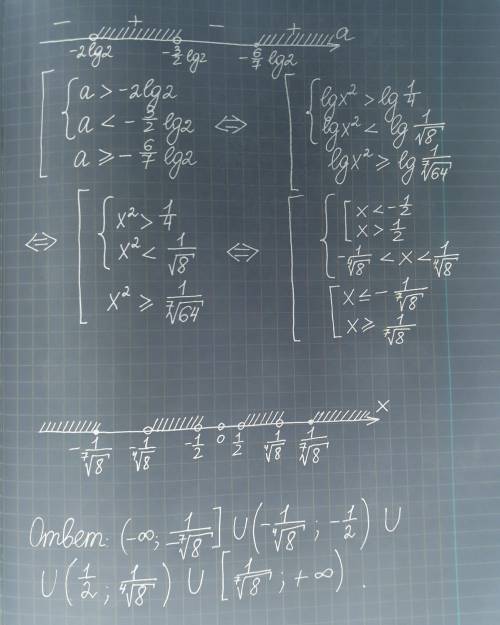 − + − + a
-2lg2 -3/2 lg2 -6/7 lg2
[ { a > -2lg2
a < -3/2 lg2 ⇔
a ≥ -6/7 lg2
[ { lgx² > lg 1/4
lgx² < lg 1/√8
lgx² ≥ lg 1/⁷√64
⇔ [ { x² > 1/4
x² < 1/√8 ⇔
x² ≥ 1/⁷√64
[ { [ x < -1/2
x > 1/2
-1/⁴√8 < x < 1/⁴√8
[ x ≤ -1/⁷√8
x ≥ 1/⁷√8
x
-1/⁷√8 -1/⁴√8 -1/2 0 1/2 1/⁴√8 1/⁷√8
Ответ: (-∞; 1/⁷√8] ∪ (-1/⁴√8; -1/2) ∪
∪ (1/2; 1/⁴√8) ∪ [1/⁷√8; +∞).